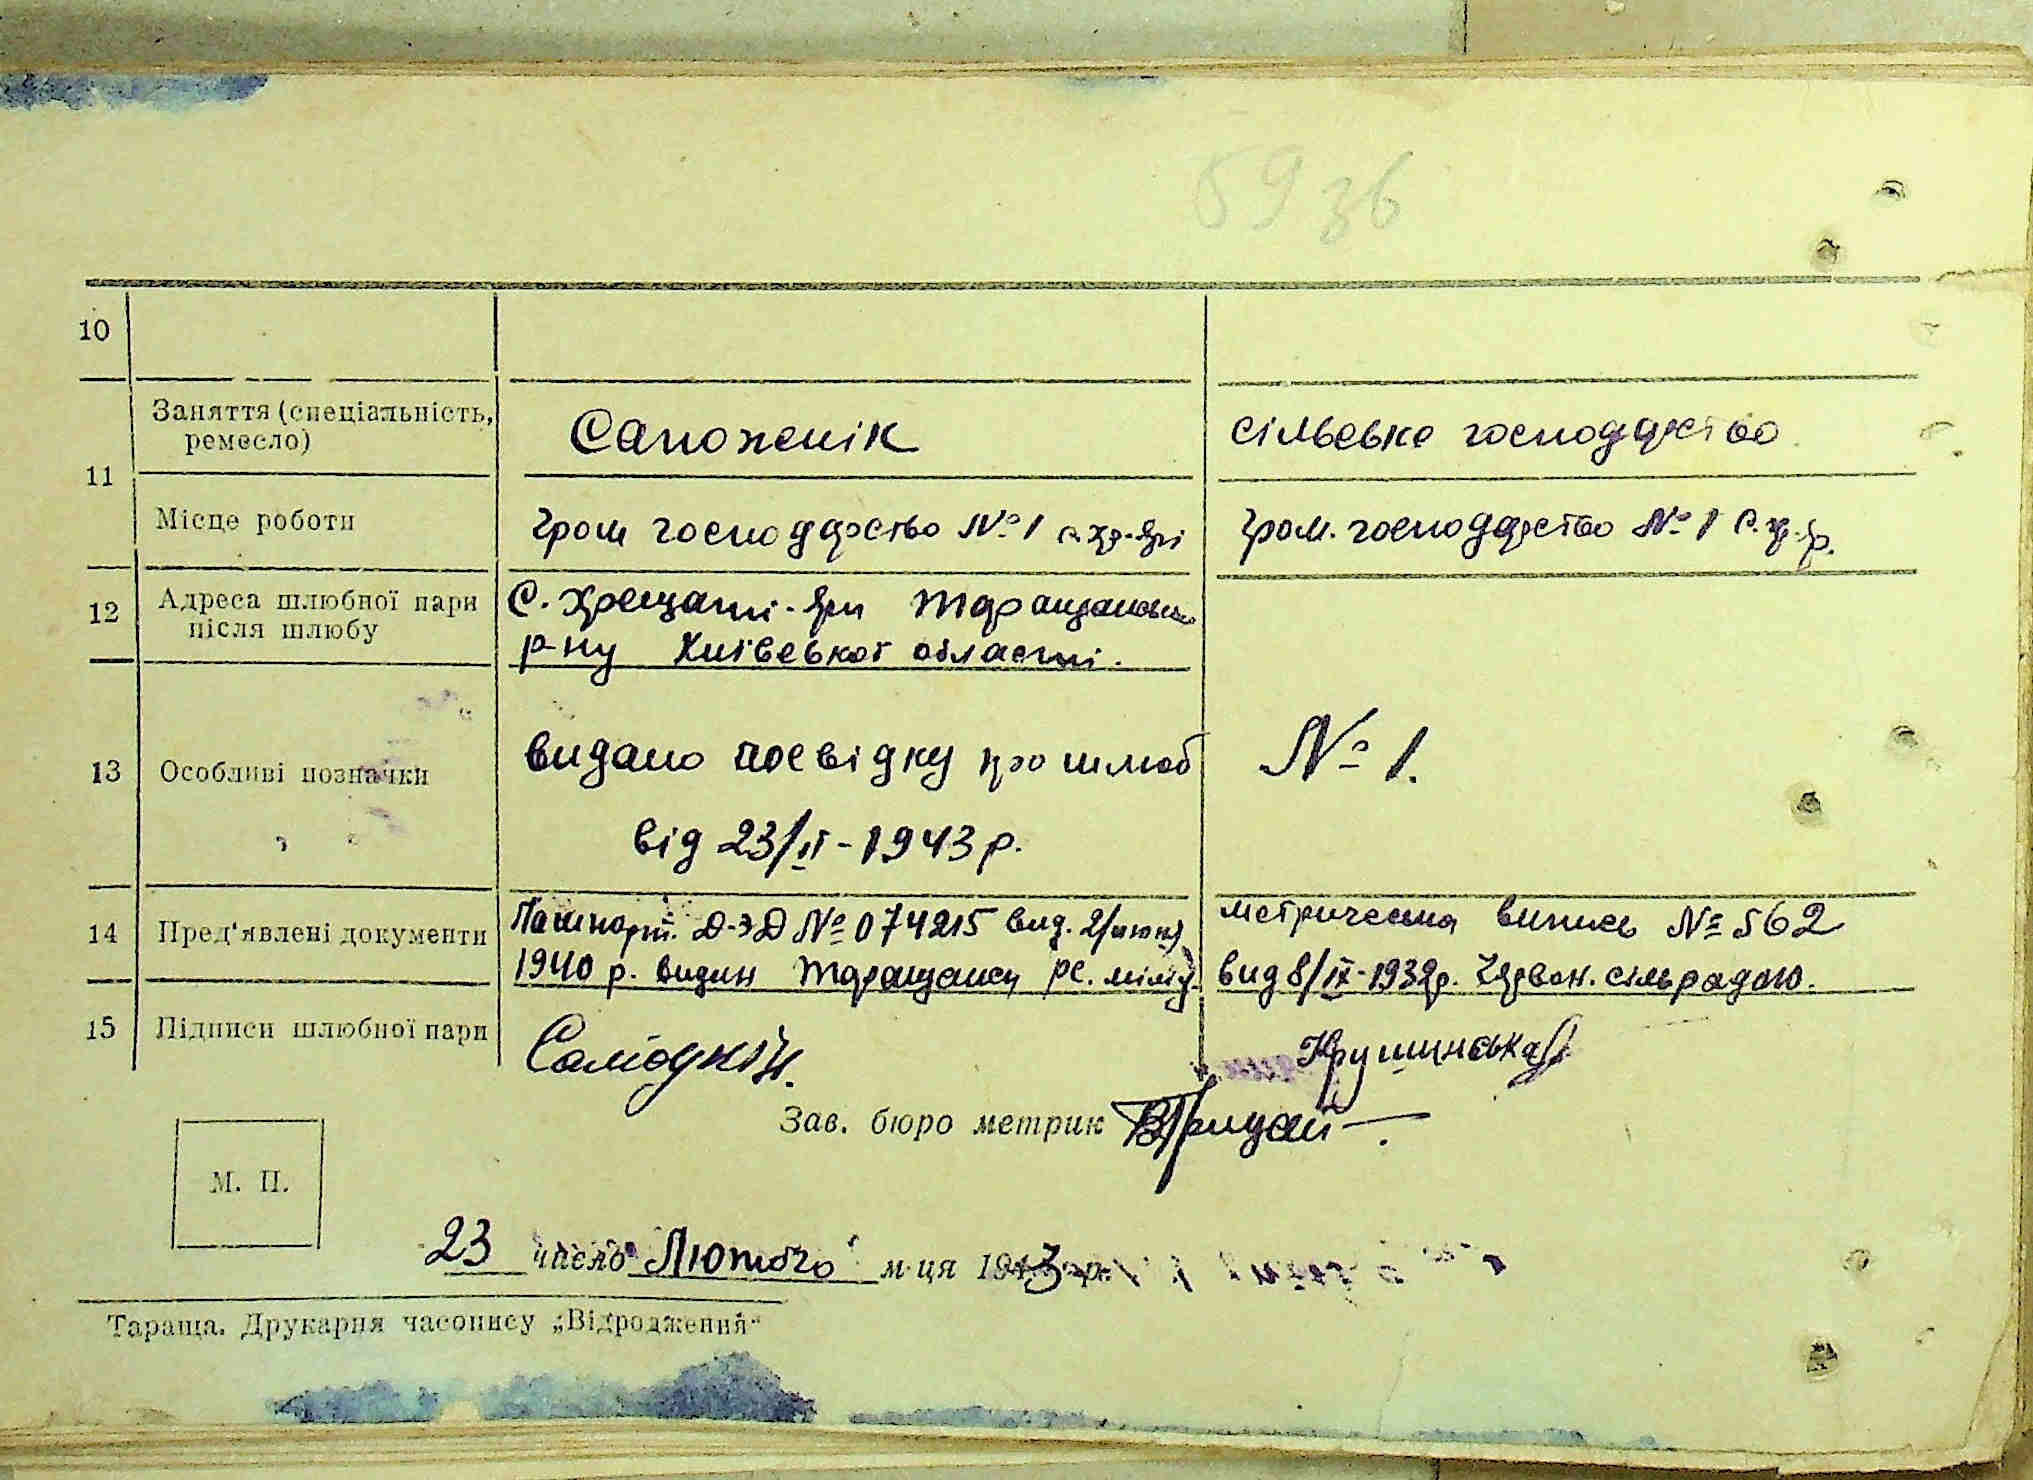 59 зв
10
Заняття (спеціальність, ремесло) Сапожнік сільське господарство
11
Місце роботи Гром господарство № 1 с. Хр-Яри Гром. господарство № 1 с. Хр.-Яр.
12 Адреса шлюбної пари після шлюбу с. Хрещаті-Яри Таращанськ
р-ну Київської області.
13 Особливі позначки видано посвідку про шлюб № 1.
від 23/II-1943 р.
14 Пред'явлені документи Пашпорт. № 074215 вид. 2/июня метрическа випись № 562
1940 р. видан Таращанск рс. міліц. вид 8/IX-1932р. Червон. сільрадою.
15 Підписи шлюбної пари Крушинська
Зав. бюро метрик
М. П.
23 число Лютого м-ця 1943 р.
Тараща. Друкарня часопису „Відродження"